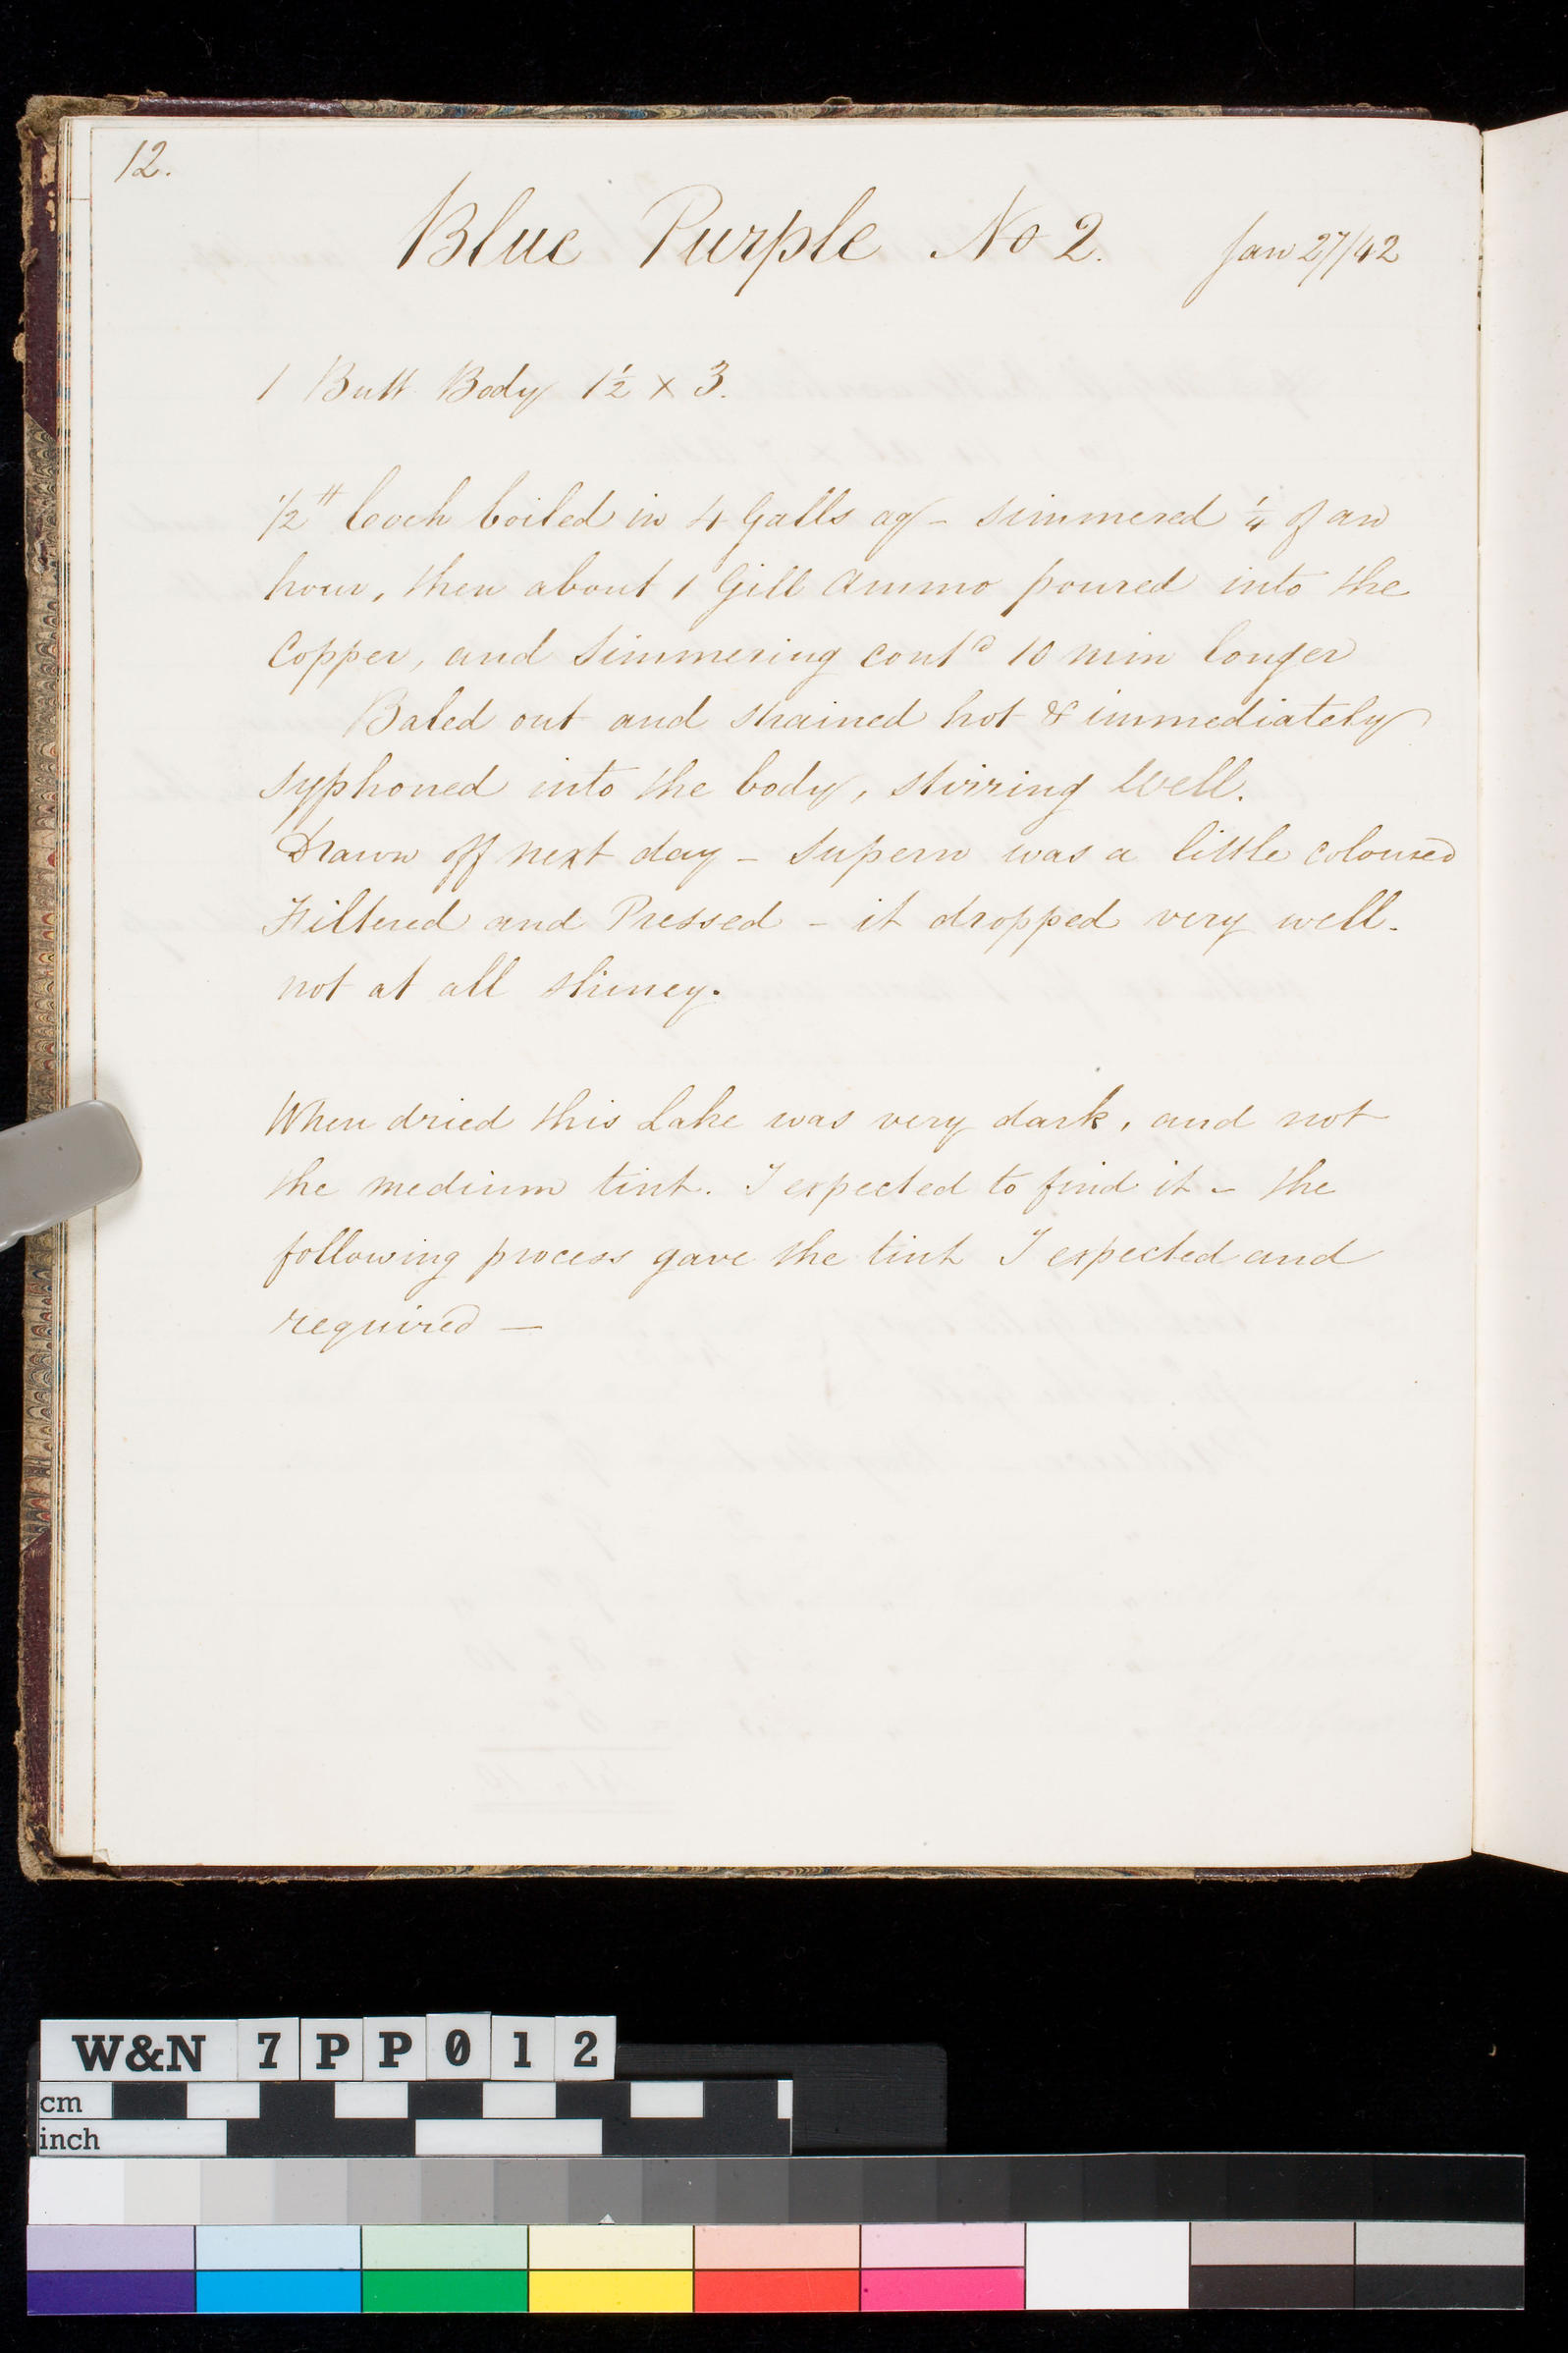 12.
Blue Purple No 2. Jan 27/42
1 Butt Body 1½ x 3.
½# Coch boiled in 4 Galls aq - simmered ¼ of an
hour, then about 1 Gill Ammo poured into the
Copper, and Simmering contd 10 min longer
Baled out and strained hot & immediately
syphoned into the body, stirring well.
Drawn off next day - Supern was a little coloured
Filtered and Pressed - it dropped very well.
not at all slimey.
When dried this Lake was very dark, and not
the medium tint. I expected to find it - the
following process gave the tint I expected and
required —
W&N 7PP012
cm
inch